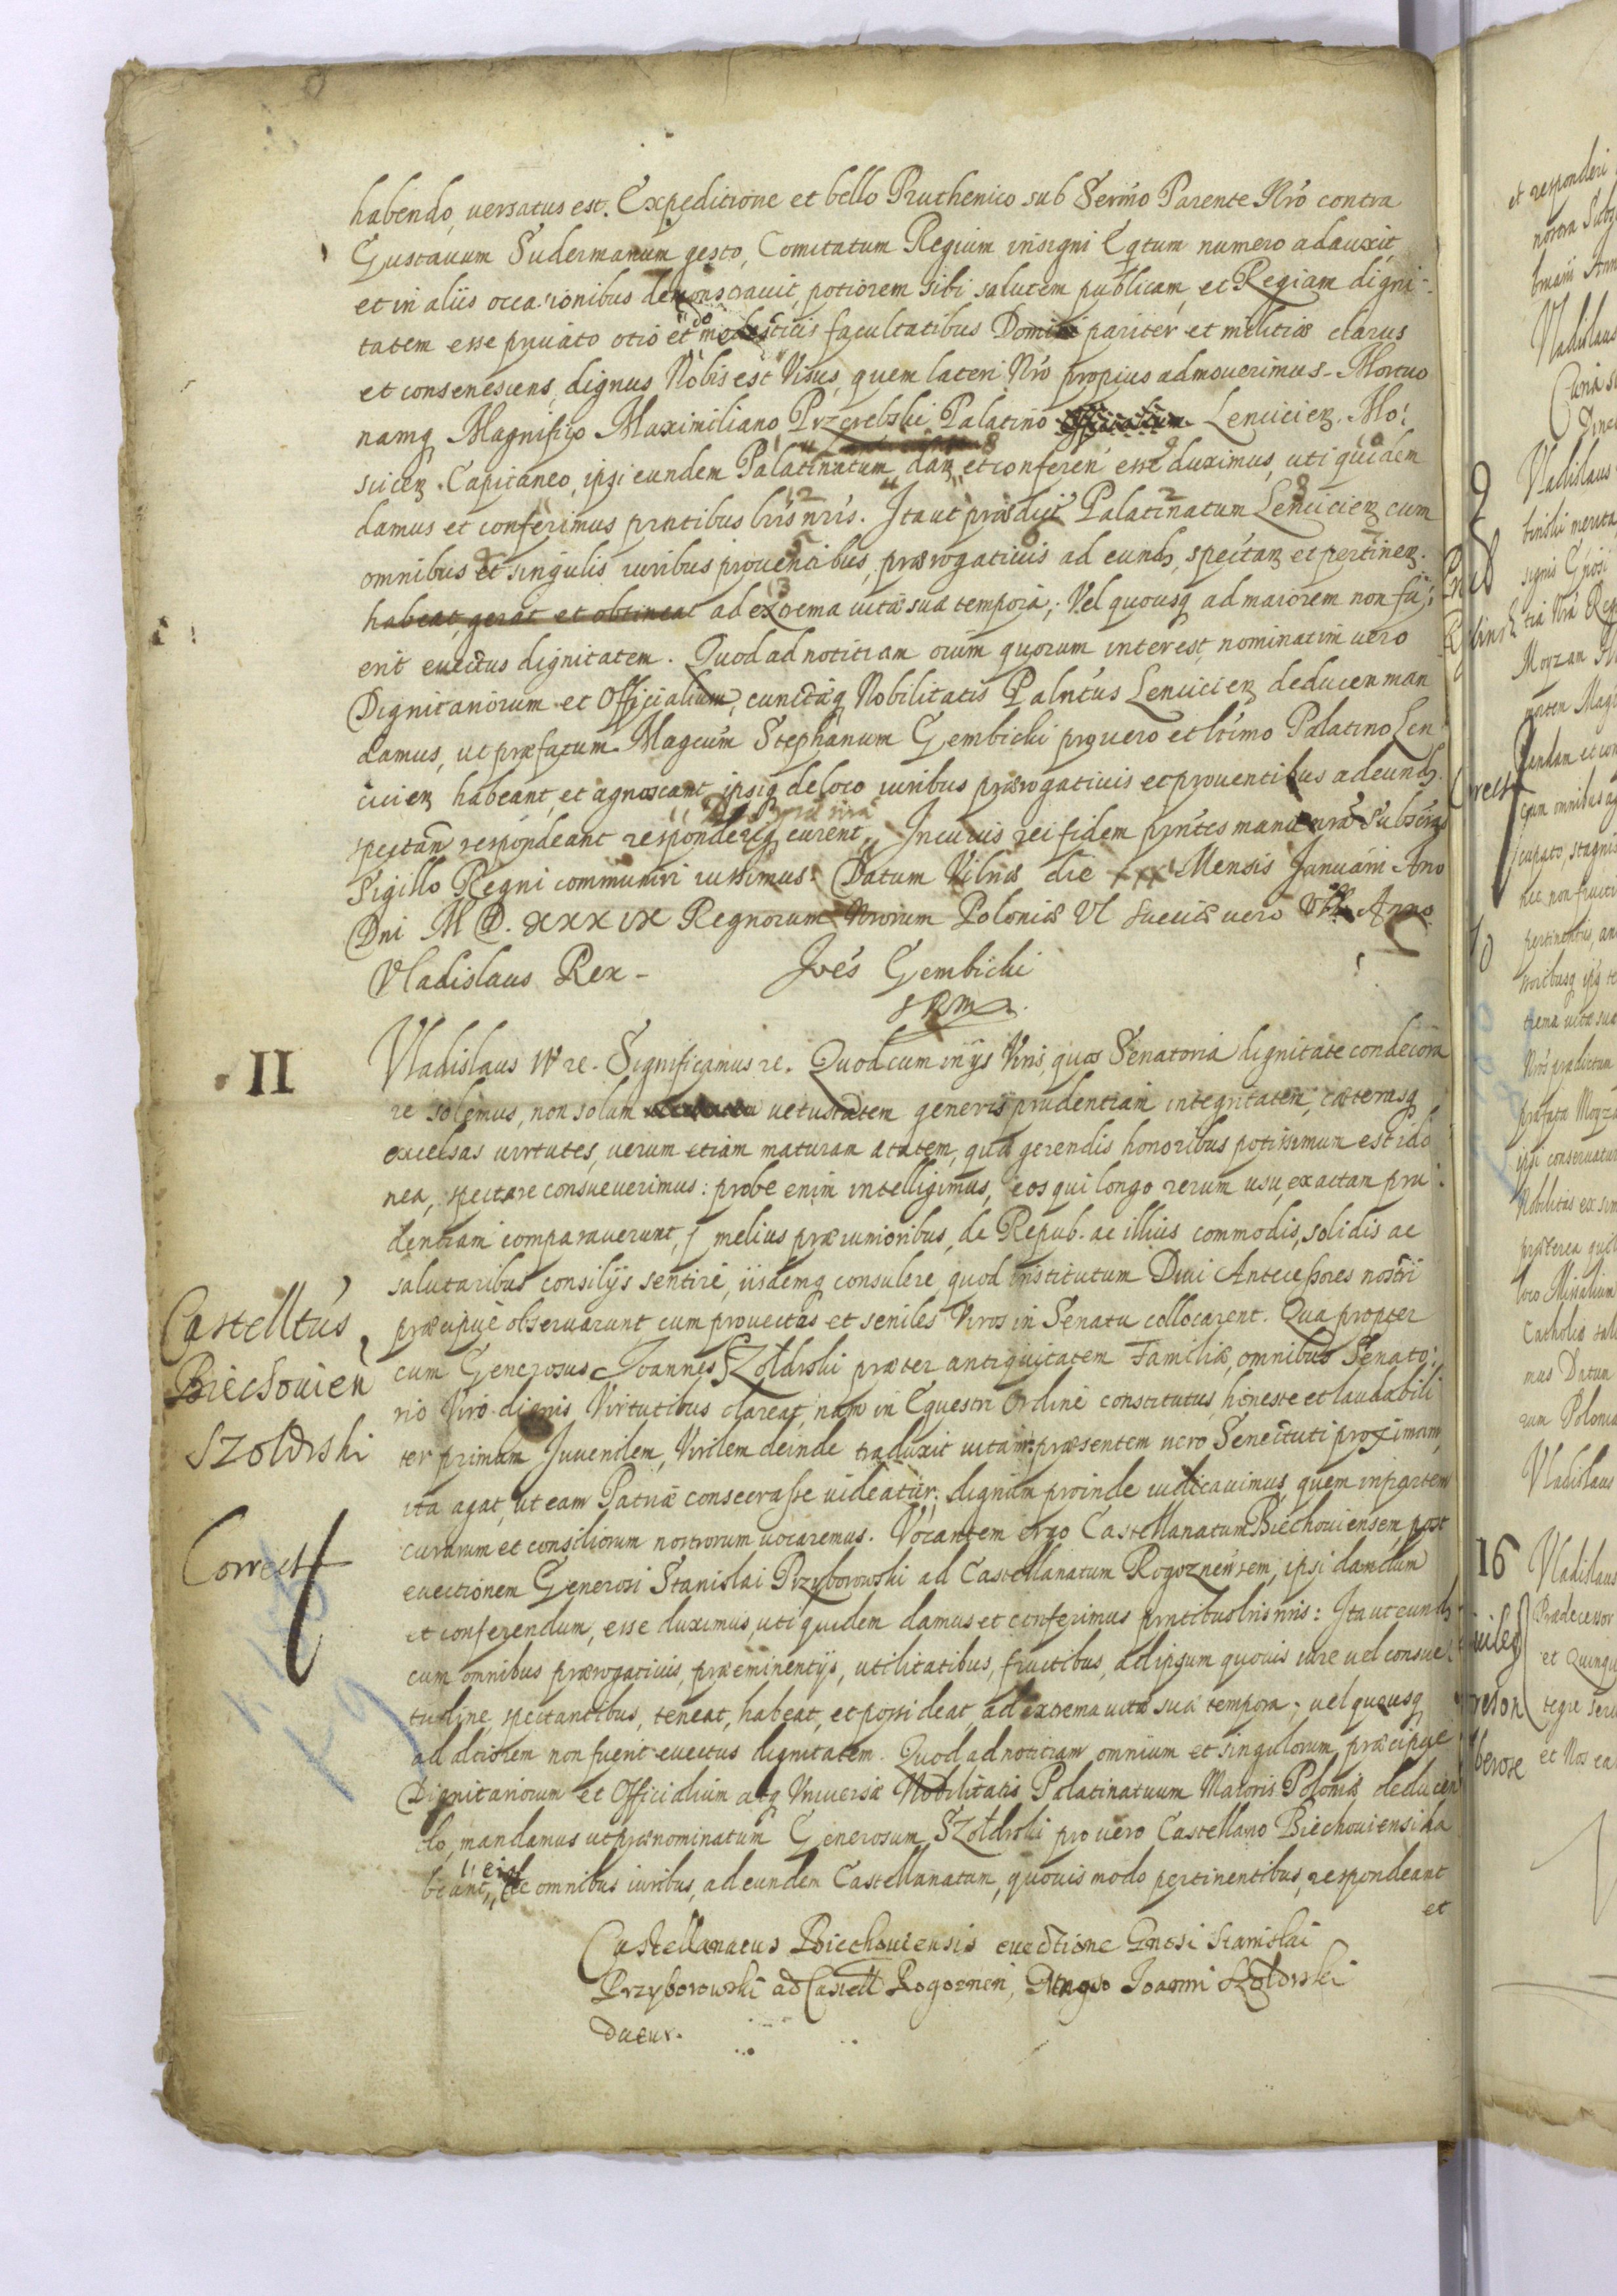 habendo, uersatus est. Expeditione et bello Pruthenico sub Sermo Parente Nro contra
Gustauum Sudermanum gesto, Comitatum Regium insigni Eqtum numero adauxit
et in aliis occasionibus demonstrauit, potiorem sibi salutem publicam, et Regiam digni-
tatem esse priuato otio et domesticis facultatibus Domi pariter et militiæ clarus
et consenescens, dignus Nobis est Visus, quem lateri Nro propius admouerimus. Mortuo
namq Magnifico Maximiliano Przerebski Palatino Lencicien. Mo:
scicen. Capitaneo, ipsi eundem Palatinatum dan et conferen esse duximus, uti quidem
damus et conferimus prntibus lris nris. Ita ut prædict Palatinatum Lencicien cum
omnibus et singulis iuribus prouentibus, prærogatiuis ad eund, spectan et pertinen.
habeat, gerat et obtineat ad extrema uitæ suæ tempora, Vel quousq ad maiorem non fu:
erit euectus dignitatem. Quod ad notitiam oium quorum interest, nominatim uero
Dignitariorum et Officialium, cunctæq Nobilitatis Palntus Lencicien deducen man
damus, ut præfatum Magcum Stephanum Gembicki pro uero et ltimo Palatino Len
cicien habeant, et agnoscant, ipsiq de loco iuribus prærogatiuis et prouentibus ad eund.
spectan respondeant responderiq curent, In cuius rei fidem prntes manu nra Subscrips
Sigillo Regni communiri iussimus. Datum Vilnæ die XIX Mensis Januarii Ano
Dni M D. XXXIX Regnorum Nrorum Poloniæ VI Sueciæ uero Anno
Vladislaus Rex - Joes Gembicki
SRM
II
Vladislaus IV re. Significamus re. Quod cum in ijs Viris, quos Senatoria dignitate condecora
re solemus, non solum uetustatem generis prudentiam integritatem, cæterasq
excelsas uirtutes, uerum etiam maturam ætatem, quæ gerendis honoribus potissimum est ido
nea, spectare consueuerimus: probe enim intelligimus, eos qui longo rerum usu, exactam pru:
dentiam comparauerunt, melius præ iunioribus, de Repub. ac illius commodis, solidis ac
salutaribus consilijs sentire, iisdemq consulere, quod institutum Diui Antecessores nostri
præcipue obseruarunt cum prouectas et seniles Viros in Senatu collocarent. Qua propter
cum Generosus Joannes Szołdrski præter antiquitatem Familiæ, omnibus Senato:
rio Viro dignis Virtutibus clareat, nam in Equestri Ordine constitutus, honeste et laudabili
ter primum Juuenilem, Virilem deinde traduxit uitam: præsentem uero Senectuti proximam,
ita agat, ut eam Patriæ consecrasse uideatur; dignum proinde iudicauimus, quem in partem
curarum et consiliorum nostrorum uocaremus. Vacantem ergo Castellanatum Biechouiensem, post
euectionem Generosi Stanislai Przyborowski ad Castellanatum Rogoznensem, ipsi dandum
et conferendum, esse duximus, uti quidem damus et conferimus prntibus lris nris: Ita ut eund
cum omnibus prærogatiuis, præeminentijs, utilitatibus, fructibus, ad ipsum quouis iure uel consue
tudine, spectantibus, teneat, habeat, et possideat, ad extrema uitæ suæ tempora; uel quousq
ad altiorem non fuerit euectus dignitatem. Quod ad notitiam omnium et singulorum, præcipue
Dignitariorum et Officialium atq Vniuersæ Nobilitatis Palatinatuum Maioris Poloniæ deducen
do, mandamus ut prænominatum Generosum Szołdrski pro uero Castellano Biechouiensi ha
beant, eiq de omnibus iuribus, ad eundem Castellanatum, quouis modo pertinentibus, respondeant
et
Castelltus
Biechouien
Szoldrski
Correct
Castellanatus Biechouiensis euectione Gnosi Stanislai
Przyborowski ad Castell Rogoznen, Joanni Szoldrski
datur.
9
Correct
10
16
et responderi
nostra Subs
Vladislaus
Vladislaus
binski merita
signis Gnosi
tia Nra Reg
Moyzan
mortem Magi
cum omnibus
nec non fructi
pertinentiis, an
Nros prædictum
præfata Moyza
ipsi conseruatur
Nobilitas ex sin
præterea quod
loco Missalium
Catholic
mus Datum
rum Polonia
Vladislaus
Vladislaus
Prædecessor
et Quinqu
tegre seru
et Nos ea